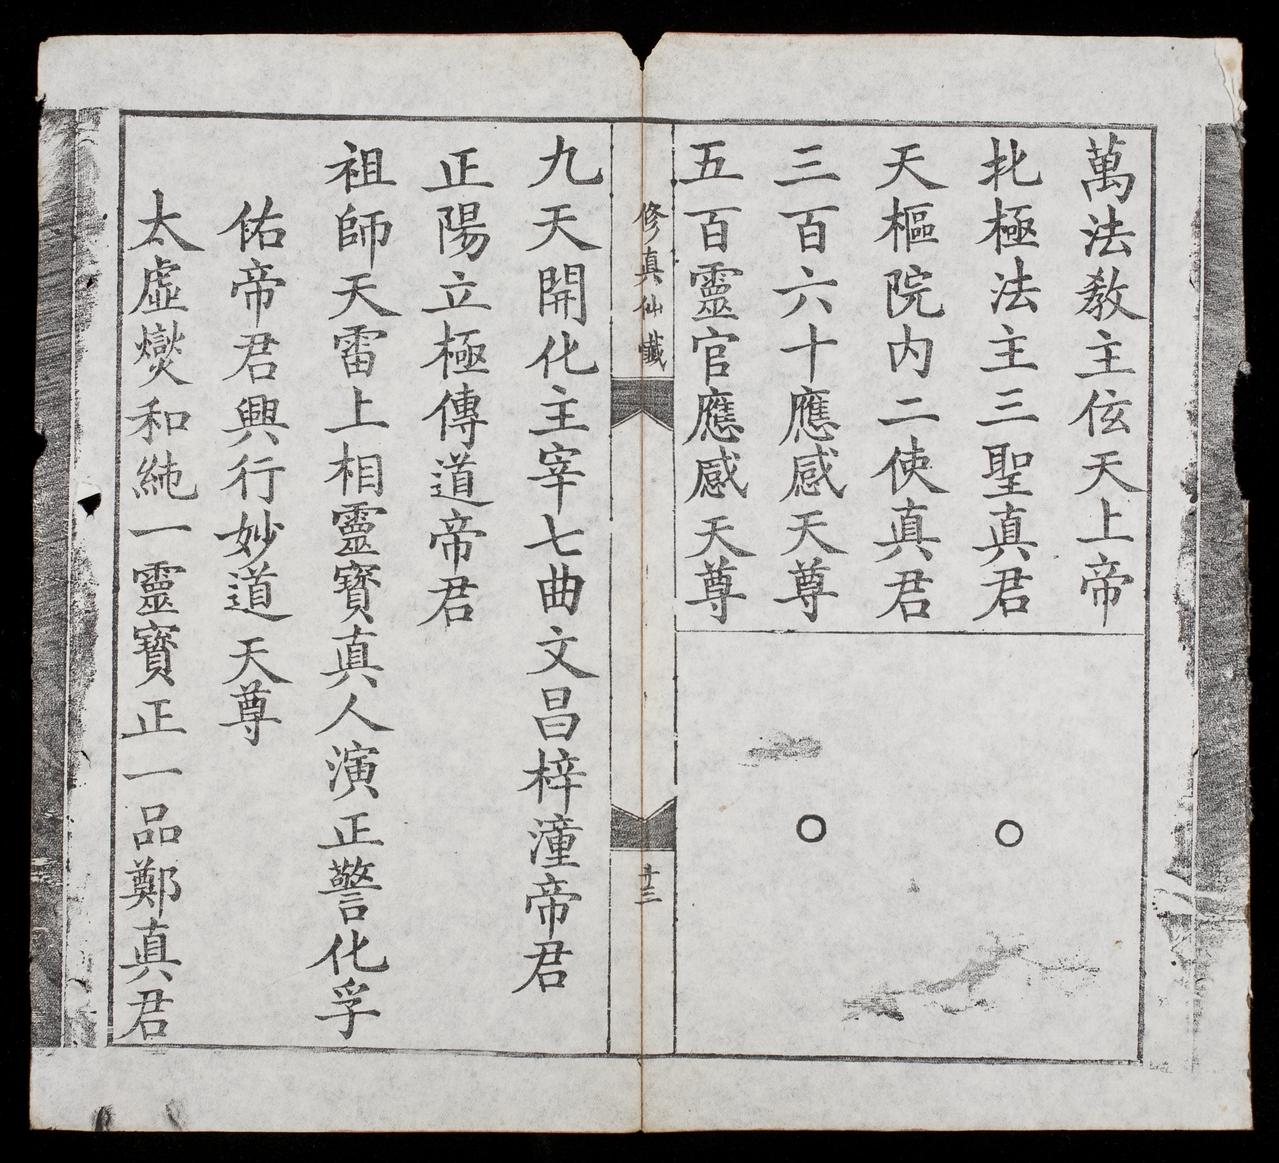 萬法敎主伭天上帝
北極法主三聖真君
天樞院内二使真君
三百六十應感天尊
五百靈官應感天尊
修真仙懴
十三
九天開化主宰七曲文昌梓潼帝君
正陽立極傳道帝君
祖師天雷上相靈寶真人演正警化孚
佑帝君興行妙道天尊
太虛爕和純一靈寶正一品鄭真君